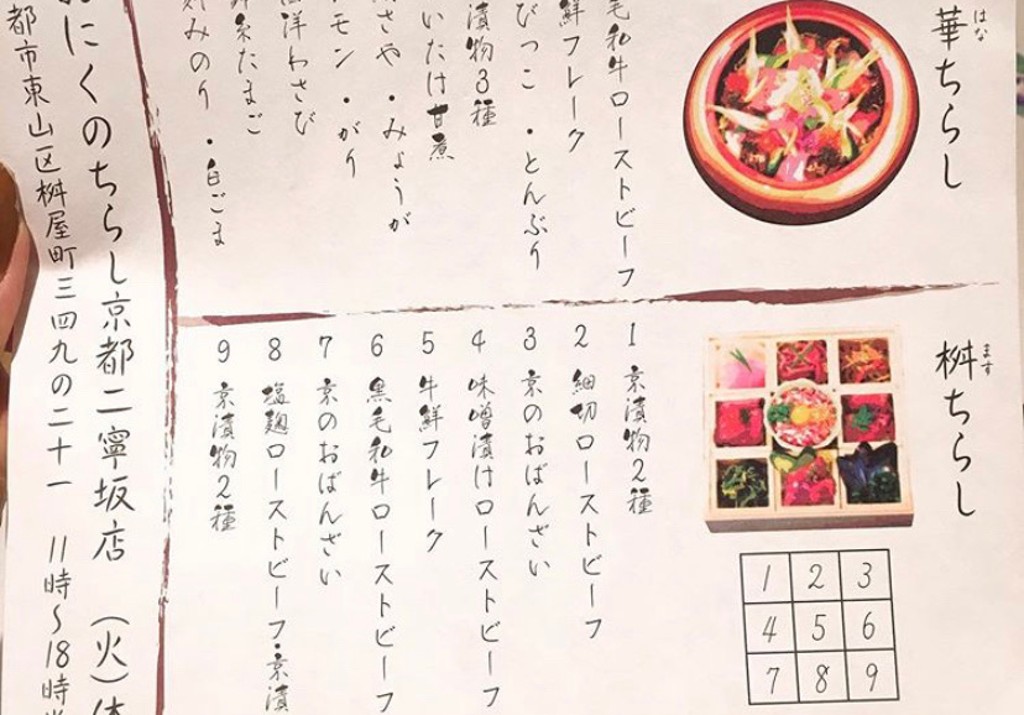 華ちらし
はな
毛和牛ローストビーフ
鮮フレーク
びっこ・とんぶり
漬物3種
いたけ甘煮
さや・みょうが
モン・がり
洋わさび
糸たまご
みのり・白ごま
桝ちらし
ます
1 2 3
4 5 6
7 8 9
1 京漬物2種
2 細切ローストビーフ
3 京のおばんざい
4 味噌漬けローストビーフ
5 牛鮮フレーク
6 黒毛和牛ローストビーフ
7 京のおばんざい
8 塩麹ローストビーフ・京漬
9 京漬物2種
にくのちらし京都二寧坂店 (火)
都市東山区桝屋町三四九の二十一 11時〜18時